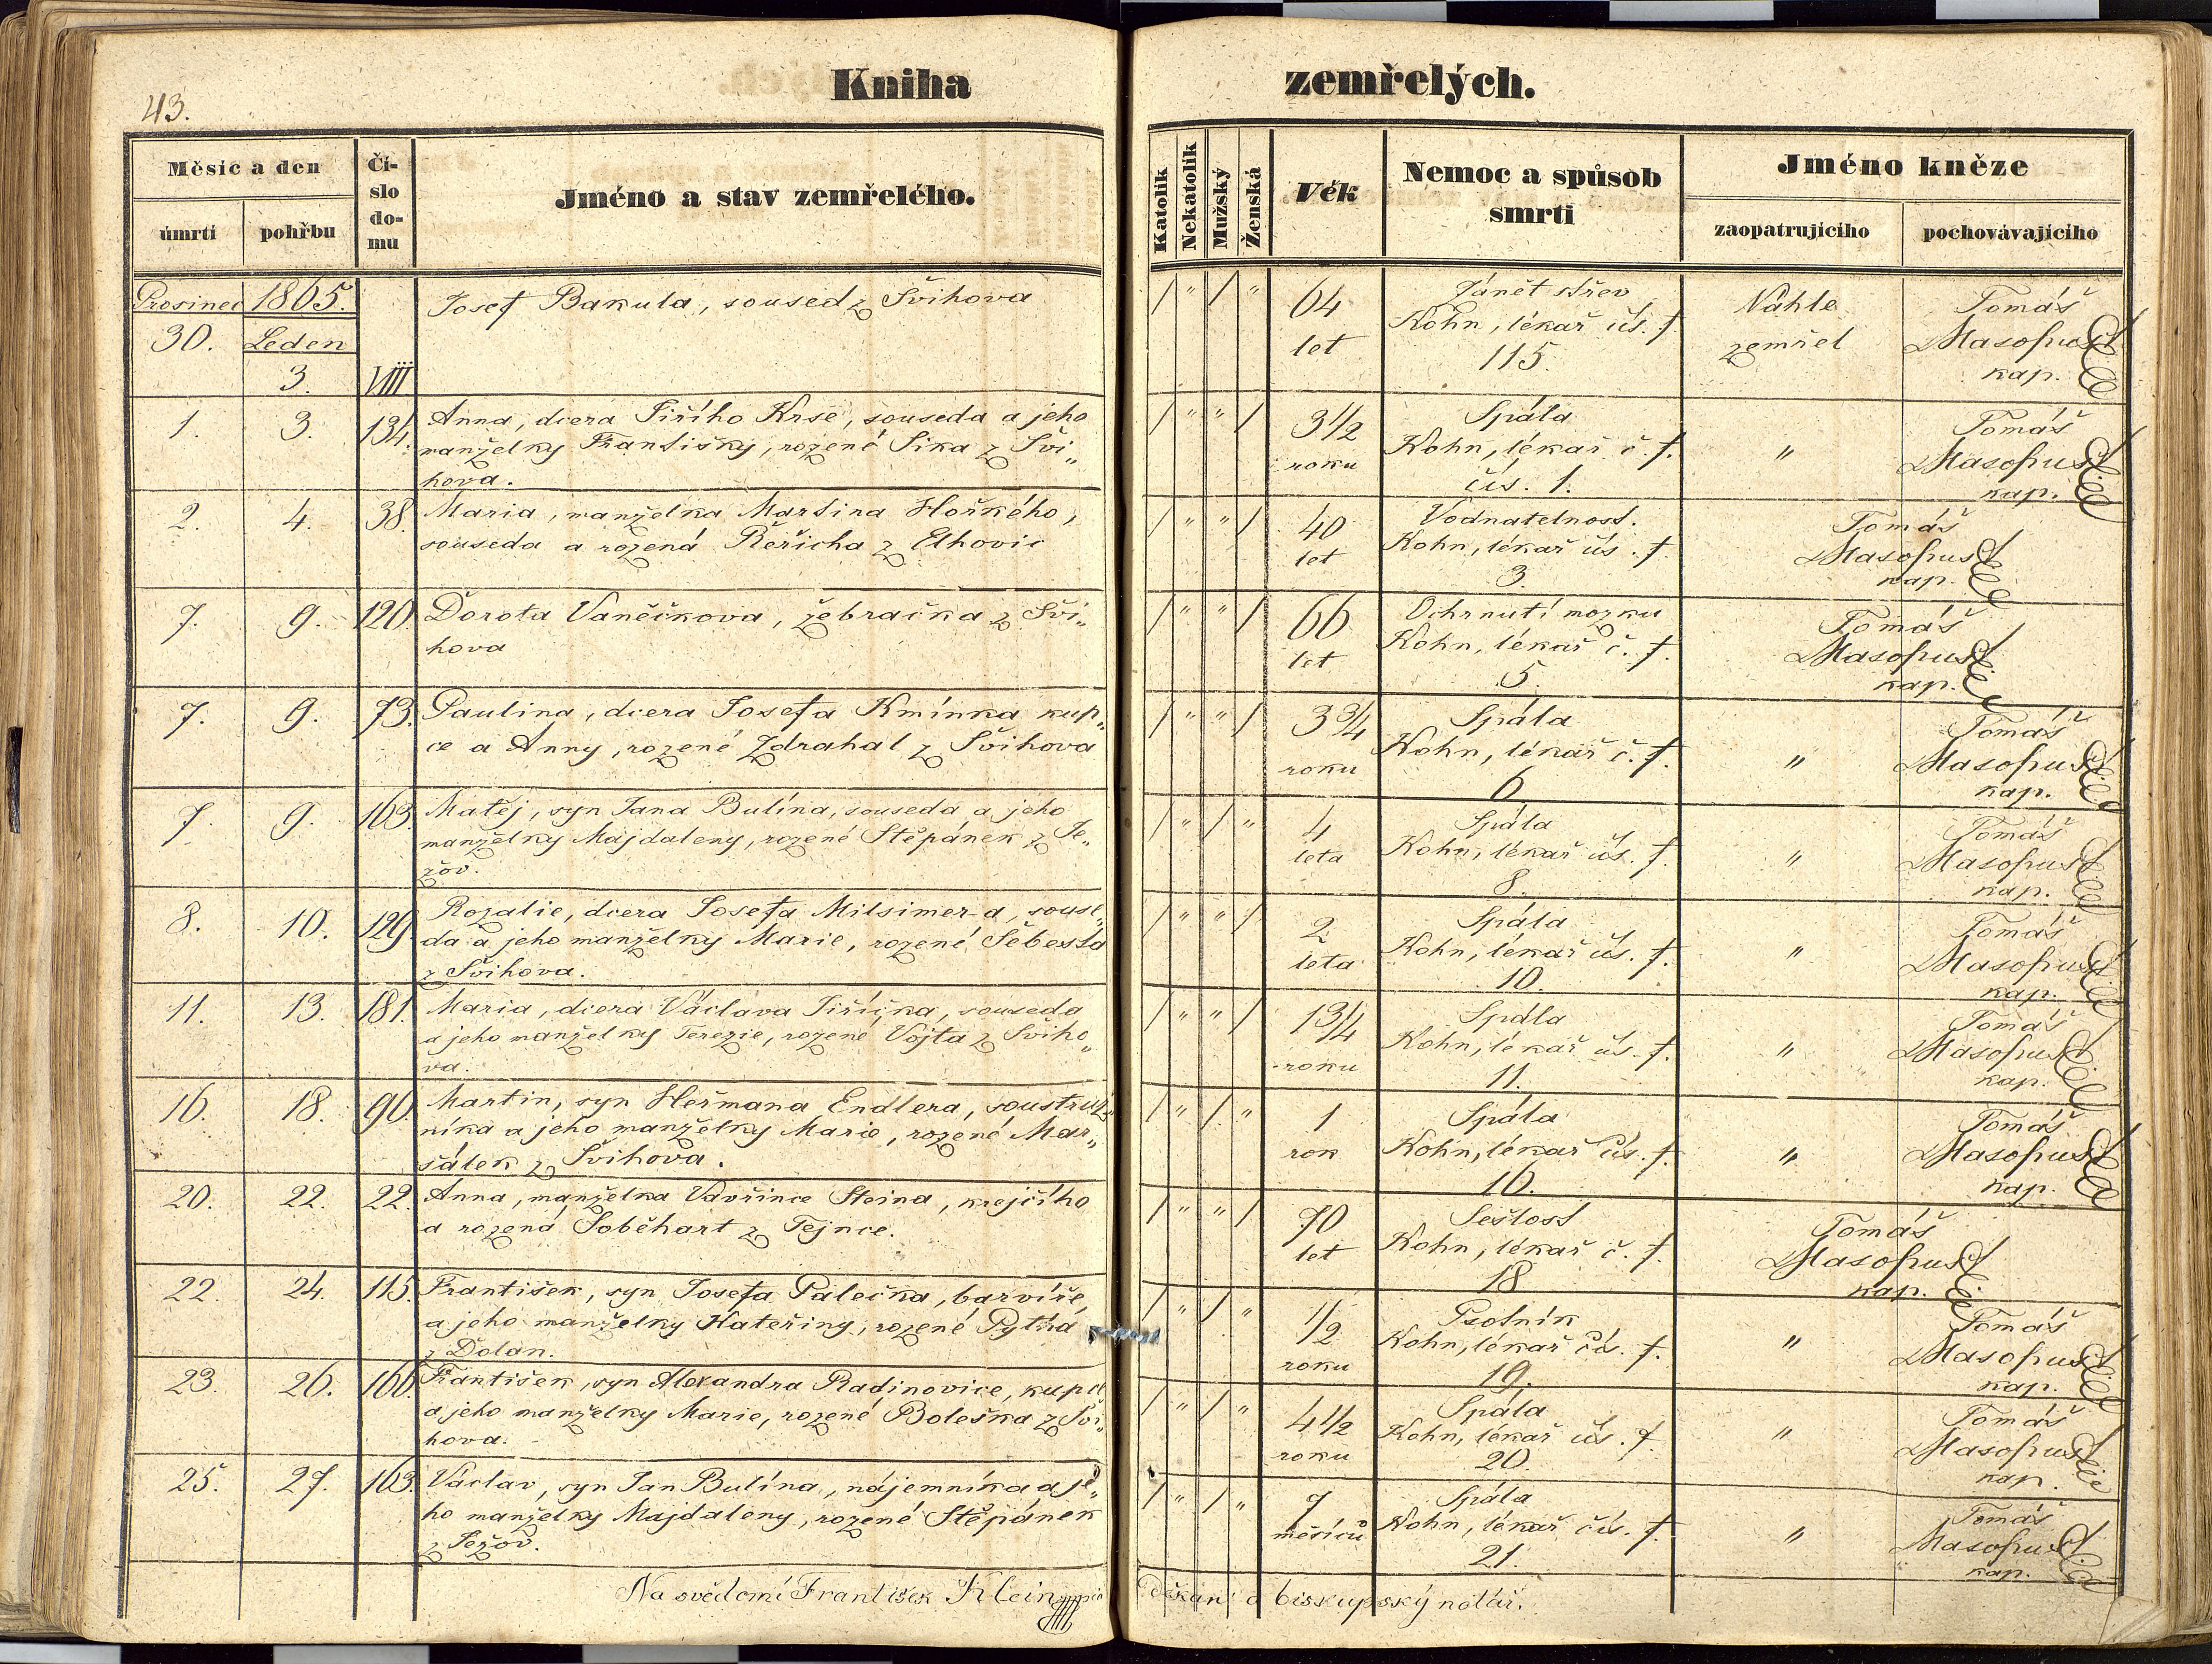 43.
Kniha zemřelých.
Měsíc a den
úmrtí
pohřbu
Čí-
slo
do-
mu
Jméno a stav zemřelého.
Katolík
Nekatolík
Mužský
Ženská
Věk
Nemoc a spůsob
smrti
Jméno kněze
zaopatrujícího
pochovávajícího
Prosinec 1865.
30. Leden
3. VIII
Josef Bakula, soused z Švihova
/ " / "
64
let
Zánět střev
Kohn, lékař čís. f.
115.
Náhle
zemřel
Tomáš
Masopust
kap.
1. 3. 134.
Anna, dcera Jiřího Krse, souseda a jeho
manželky Františky, rozené Sika z Švi„
hova.
/ " " /
3 1/2
roku
Spála
Kohn, lékař č. f.
čís. 1.
"
Tomáš
Masopust
kap.
2. 4. 38.
Maria, manželka Martina Hořkého,
souseda a rozená Řeřicha z Lhovic
/ " " /
40
let
Vodnatelnost.
Kohn, lékař čís. f.
3.
Tomáš
Masopust
kap.
7. 9. 120.
Dorota Vaněčkova, žebračka z Švi„
hova
/ " " /
66
let
Ochrnutí mozku
Kohn, lékař č. f.
5.
Tomáš
Masopust
kap.
7. 9. 73.
Paulina, dcera Josefa Kmínka kup„
ce a Anny, rozené Zdrahal z Švihova
/ " " /
3 3/4
roku
Spála
Kohn, lékař č. f.
6
"
Tomáš
Masopust
kap.
7. 9. 163.
Matěj, syn Jana Bulína, souseda a jeho
manželky Majdaleny, rozené Štěpánek z Je„
žov.
/ " / "
4
leta
Spála
Kohn, lékař čís. f.
8.
"
Tomáš
Masopust
kap.
8. 10. 129.
Rozalie, dcera Josefa Milsimer-a, souse„
da a jeho manželky Marie, rozené Šebesta
z Švihova.
/ " " /
2
leta
Spála
Kohn, lékař čís. f.
10.
"
Tomáš
Masopust
kap.
11. 13. 181.
Maria, dcera Václava Jiříčka, souseda
a jeho manželky Terezie, rozené Vojta z Šviho„
va.
/ " " /
1 3/4
roku
Spála
Kohn, lékař čís. f.
11.
"
Tomáš
Masopust
kap.
16. 18. 90.
Martin, syn Heřmana Endlera, soustruž„
níka a jeho manželky Marie, rozené Mar„
šálek z Švihova.
/ " / "
1
rok
Spála
Kohn, lékař čís. f.
16.
"
Tomáš
Masopust
kap.
20. 22. 22.
Anna, manželka Vavřince Steina, krejčího
a rozená Soběhart z Tejnce.
/ " " /
70
let
Sešlost
Kohn, lékař č. f.
18
Tomáš
Masopust
kap.
22. 24. 115.
František, syn Josefa Palečka, barvíře,
a jeho manželky Kateřiny, rozené Pytlia
z Dolan.
/ " / "
1/2
roku
Psotník
Kohn, lékař čís. f.
19.
"
Tomáš
Masopust
kap.
23. 26. 166.
František, syn Alexandra Radinovice, kupce
a jeho manželky Marie, rozené Boleška z Švi„
hova.
/ " / "
4 1/2
roku
Spála
Kohn, lékař čís. f.
20.
"
Tomáš
Masopust
kap.
25. 27. 163.
Václav, syn Jan Bulína, nájemníka a je„
ho manželky Majdaleny, rozené Štěpánek
z Ježov.
/ " / "
7
měsíců
Spála
Kohn, lékař čís. f.
21.
"
Tomáš
Masopust
kap.
Na svědomí František Klein děkan a biskupský notář.